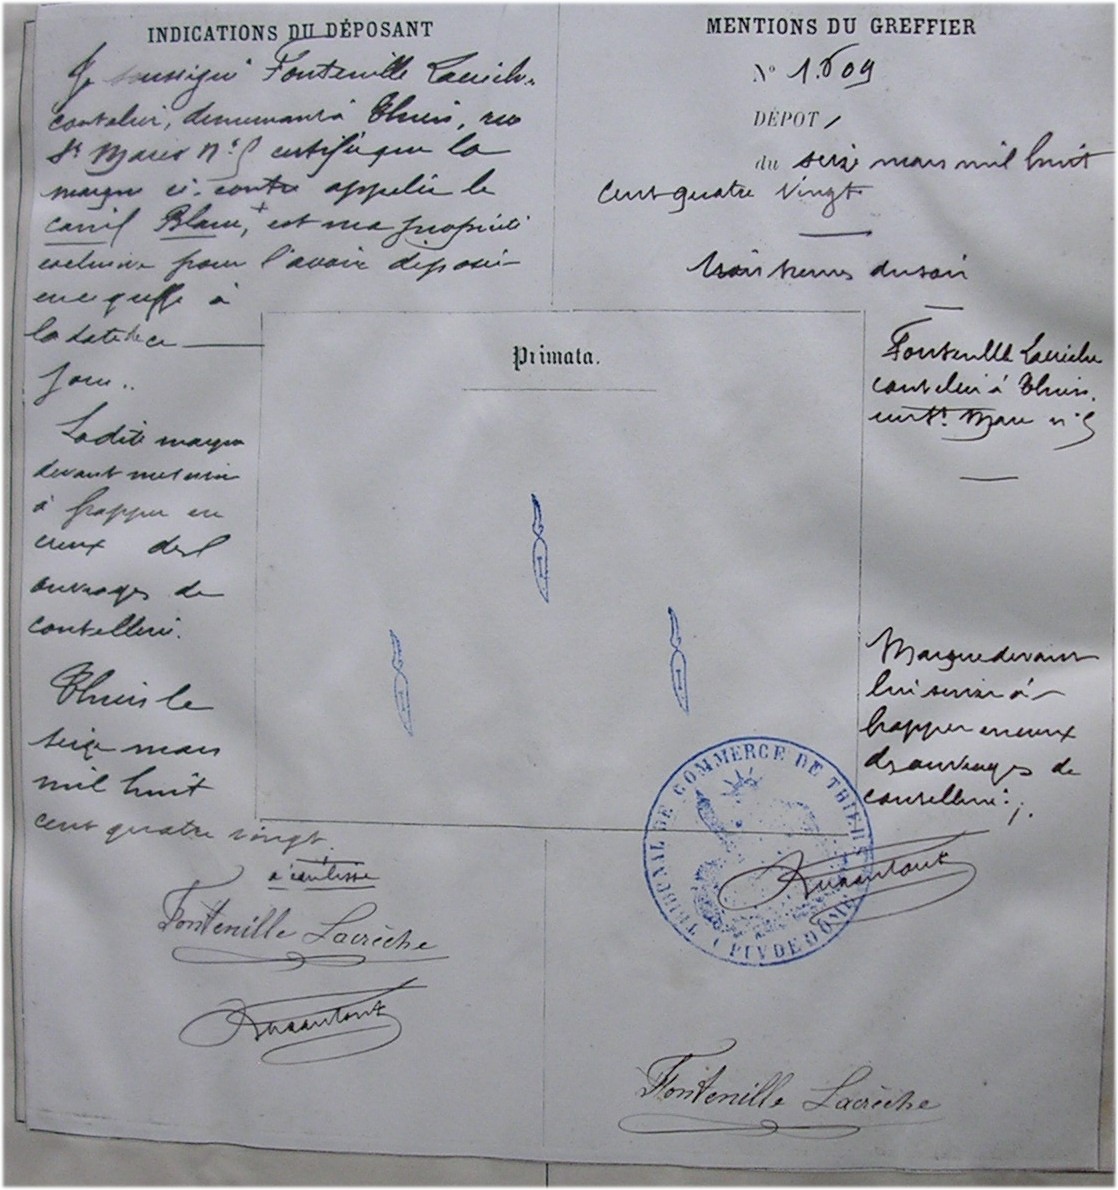 INDICATIONS DU DÉPOSANT
Je soussigné Fontenille Lacrèche
coutelier, demeurant à Thiers, rue
St Marc n° 5 certifie que la
marque ci-contre appelée le
canif Blanc, est ma propriété
exclusive pour l'avoir déposée
en ce greffe à
la date de ce
jour..
Ladite marque
devant me servir
à frapper en
creux des
ouvrages de
coutellerie.
Thiers le
seize mars
mil huit
cent quatre vingt
à coulisse
Fontenille Lacrèche
MENTIONS DU GREFFIER
N° 1.609
DÉPÔT
du seize mars mil huit
cent quatre vingt
trois heures du soir
Fontenille Lacrèche
coutelier à Thiers.
rue St. Marc n° 5
Primata.
Marque devant
lui servir à
frapper en creux
des ouvrages de
coutellerie.
TRIBUNAL DE COMMERCE DE THIERS
(PUY DE DÔME)
Fontenille Lacrèche